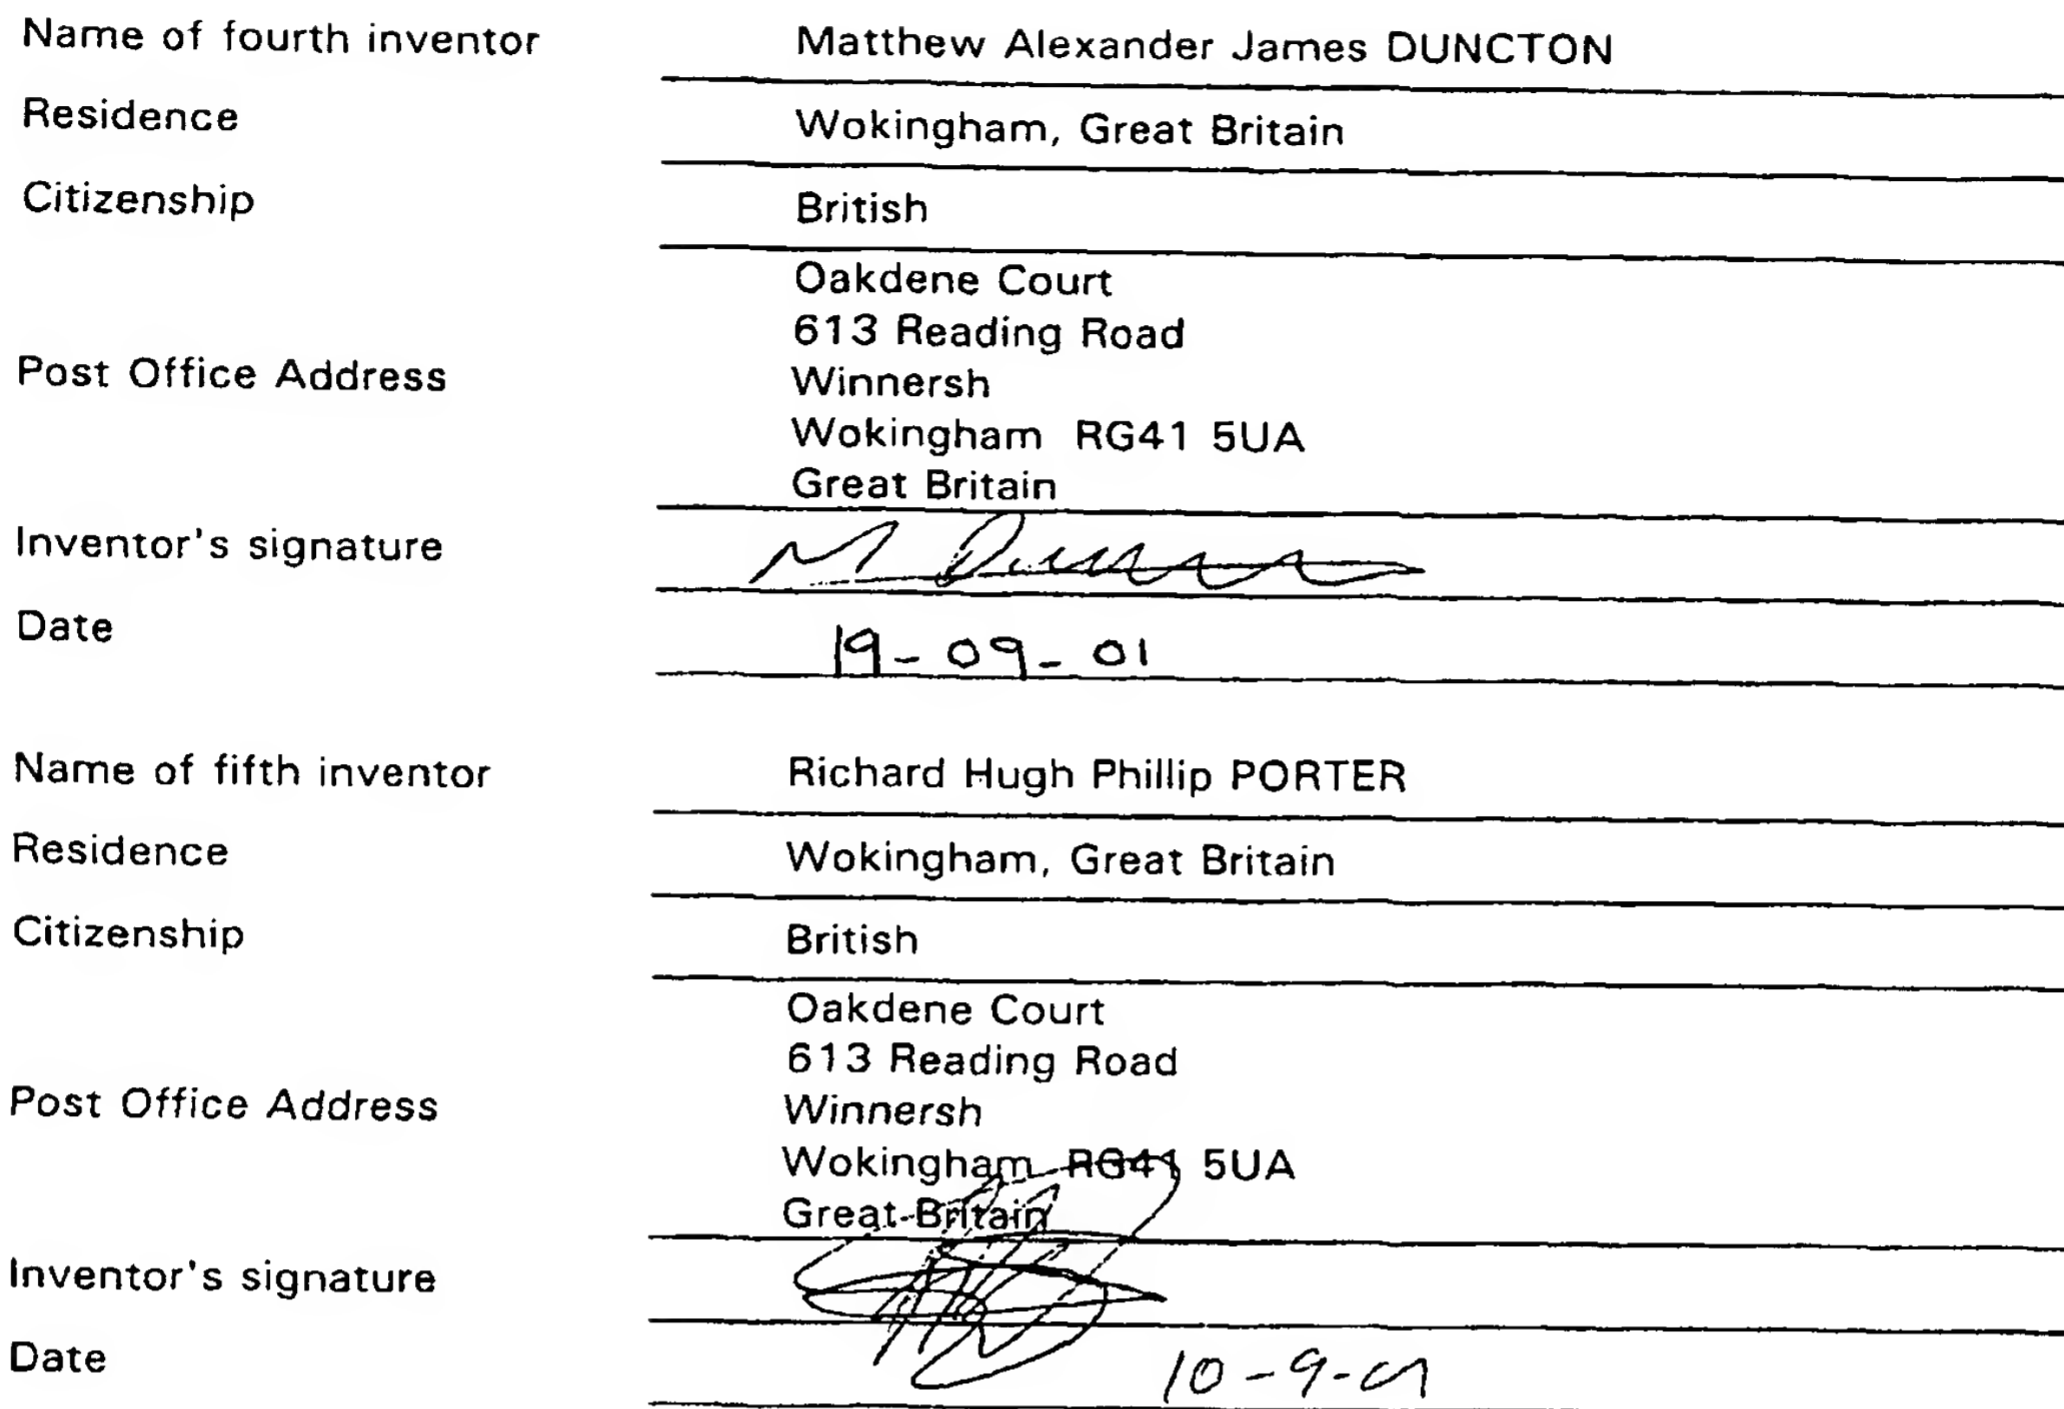 Name of fourth inventor Matthew Alexander James DUNCTON
Residence Wokingham, Great Britain
Citizenship British
Oakdene Court
613 Reading Road
Post Office Address Winnersh
Wokingham RG41 5UA
Great Britain
Inventor's signature M
Date 19-09-01
Name of fifth inventor Richard Hugh Phillip PORTER
Residence Wokingham, Great Britain
Citizenship British
Oakdene Court
613 Reading Road
Post Office Address Winnersh
Wokingham RG41 5UA
Great Britain
Inventor's signature
Date 10-9-01